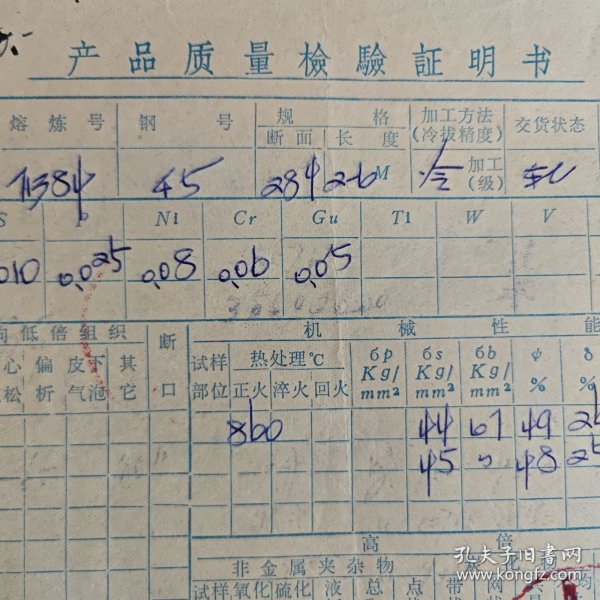 产品质量檢驗証明书
熔炼号 钢号 规格 加工方法 交货状态
断面 长度 (冷拔精度)
45 284 2-6M 冷 加工(级) 轧
S P Ni Cr Gu T1 W V
010 0.025 0.08 0.06 0.05
向低倍组织 断口 机械性能
心 偏析 皮下气泡 其它 试样部位 热处理℃ σp Kg/mm² σs Kg/mm² σb Kg/mm² ψ % δ %
松 正火 淬火 回火
860 44 67 49
45 〃 48
高倍
非金属夹杂物
试样 氧化 硫化 液 总 点 带 网
孔夫子旧书网
www.kongfz.com